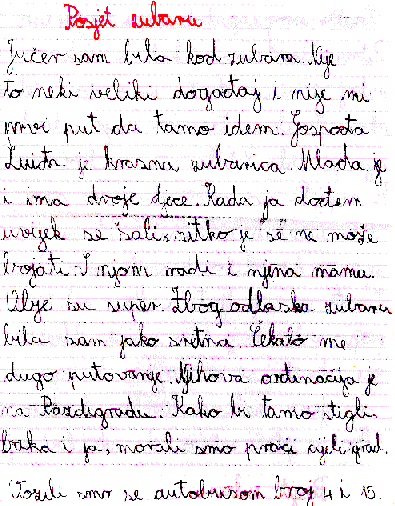 Posjet zubaru
Jučer sam bila kod zubara. Nije
to neki veliki događaj i nije mi
prvi put da tamo idem. Gospođa
je krasna zubarica. Mlada je
i ima dvoje djece. Kada ja dođem
uvijek se šali, zitko je se ne može
brojati. S njom radi i njena mama.
Obje su super. Zbog odlaska zubaru
bila sam jako sretna. Čekalo me
dugo putovanje. Njihova ordinacija je
na Pazdigradu. Kako bi tamo stigli
baka i ja, morali smo proći cijeli grad.
Vozili smo se autobusom broj 4 i 15.